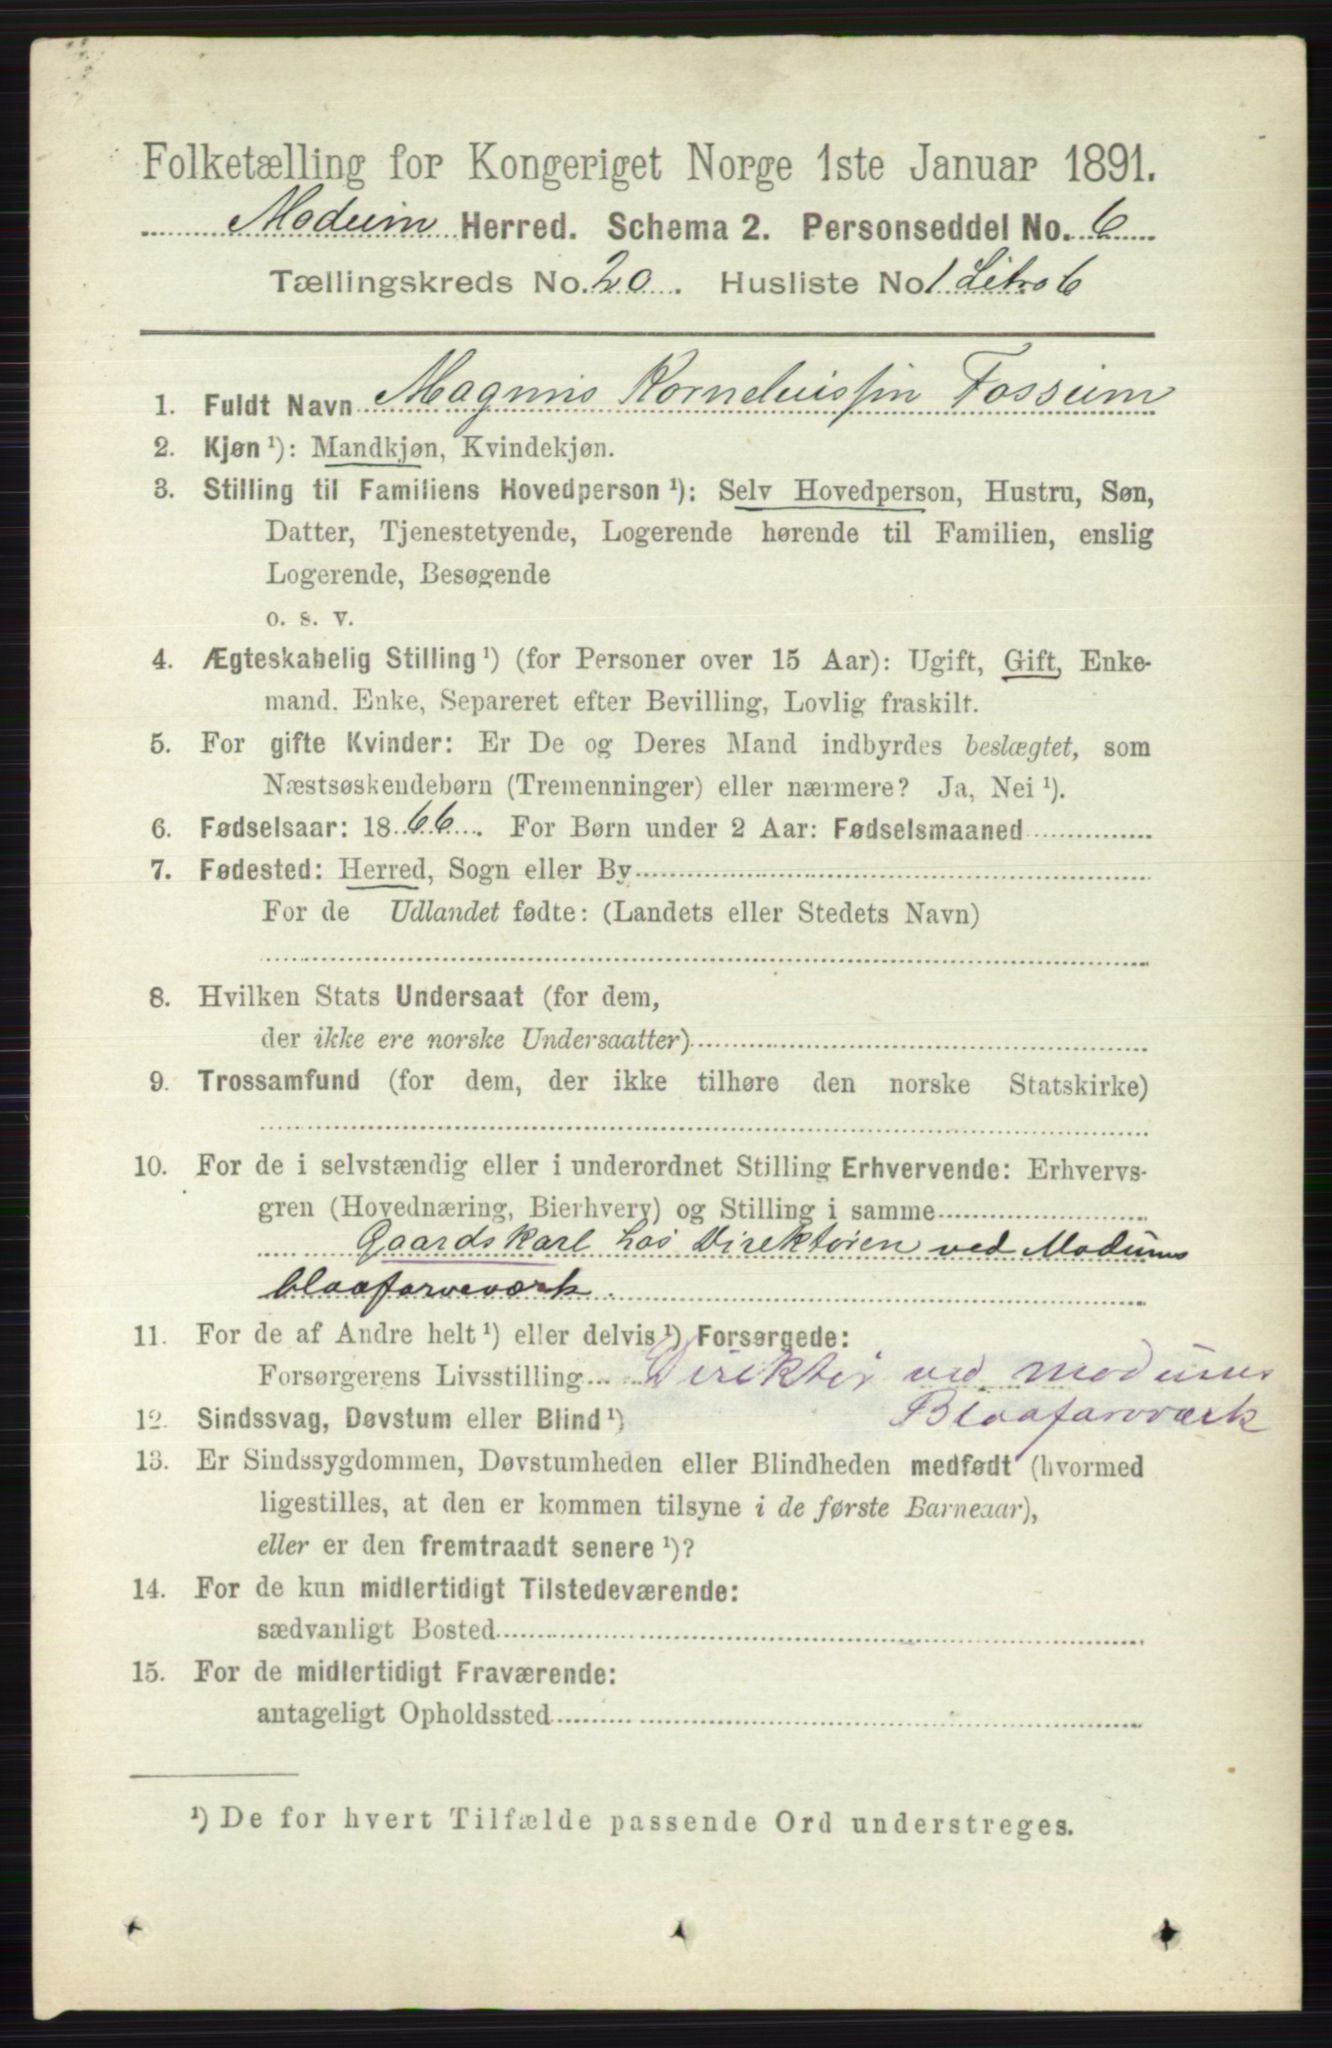 Folketælling for Kongeriget Norge 1ste Januar 1891.
Modum Herred. Schema 2. Personseddel No. 6
Tællingskreds No. 20. Husliste No. 1 Litra b
1. Fuldt Navn Magnus Korneliussen Fossum
2. Kjøn ¹): Mandkjøn, Kvindekjøn.
3. Stilling til Familiens Hovedperson ¹): Selv Hovedperson, Hustru, Søn,
Datter, Tjenestetyende, Logerende hørende til Familien, enslig
Logerende, Besøgende
o. s. v.
4. Ægteskabelig Stilling ¹) (for Personer over 15 Aar): Ugift, Gift, Enke-
mand. Enke, Separeret efter Bevilling, Lovlig fraskilt.
5. For gifte Kvinder: Er De og Deres Mand indbyrdes beslægtet, som
Næstsøskendebørn (Tremenninger) eller nærmere? Ja, Nei ¹).
6. Fødselsaar: 1866. For Børn under 2 Aar: Fødselsmaaned
7. Fødested: Herred, Sogn eller By
For de Udlandet fødte: (Landets eller Stedets Navn)
8. Hvilken Stats Undersaat (for dem,
der ikke ere norske Undersaatter)
9. Trossamfund (for dem, der ikke tilhøre den norske Statskirke)
10. For de i selvstændig eller i underordnet Stilling Erhvervende: Erhvervs-
gren (Hovednæring, Bierhverv) og Stilling i samme
Gaardskarl hos Direktøren ved Modums
blaafarveværk.
11. For de af Andre helt ¹) eller delvis ¹) Forsørgede:
Forsørgerens Livsstilling Direktør ved Modums
12. Sindssvag, Døvstum eller Blind ¹) Blaafarveværk
13. Er Sindssygdommen, Døvstumheden eller Blindheden medfødt (hvormed
ligestilles, at den er kommen tilsyne i de første Barneaar),
eller er den fremtraadt senere ¹)?
14. For de kun midlertidigt Tilstedeværende:
sædvanligt Bosted
15. For de midlertidigt Fraværende:
antageligt Opholdssted
¹) De for hvert Tilfælde passende Ord understreges.